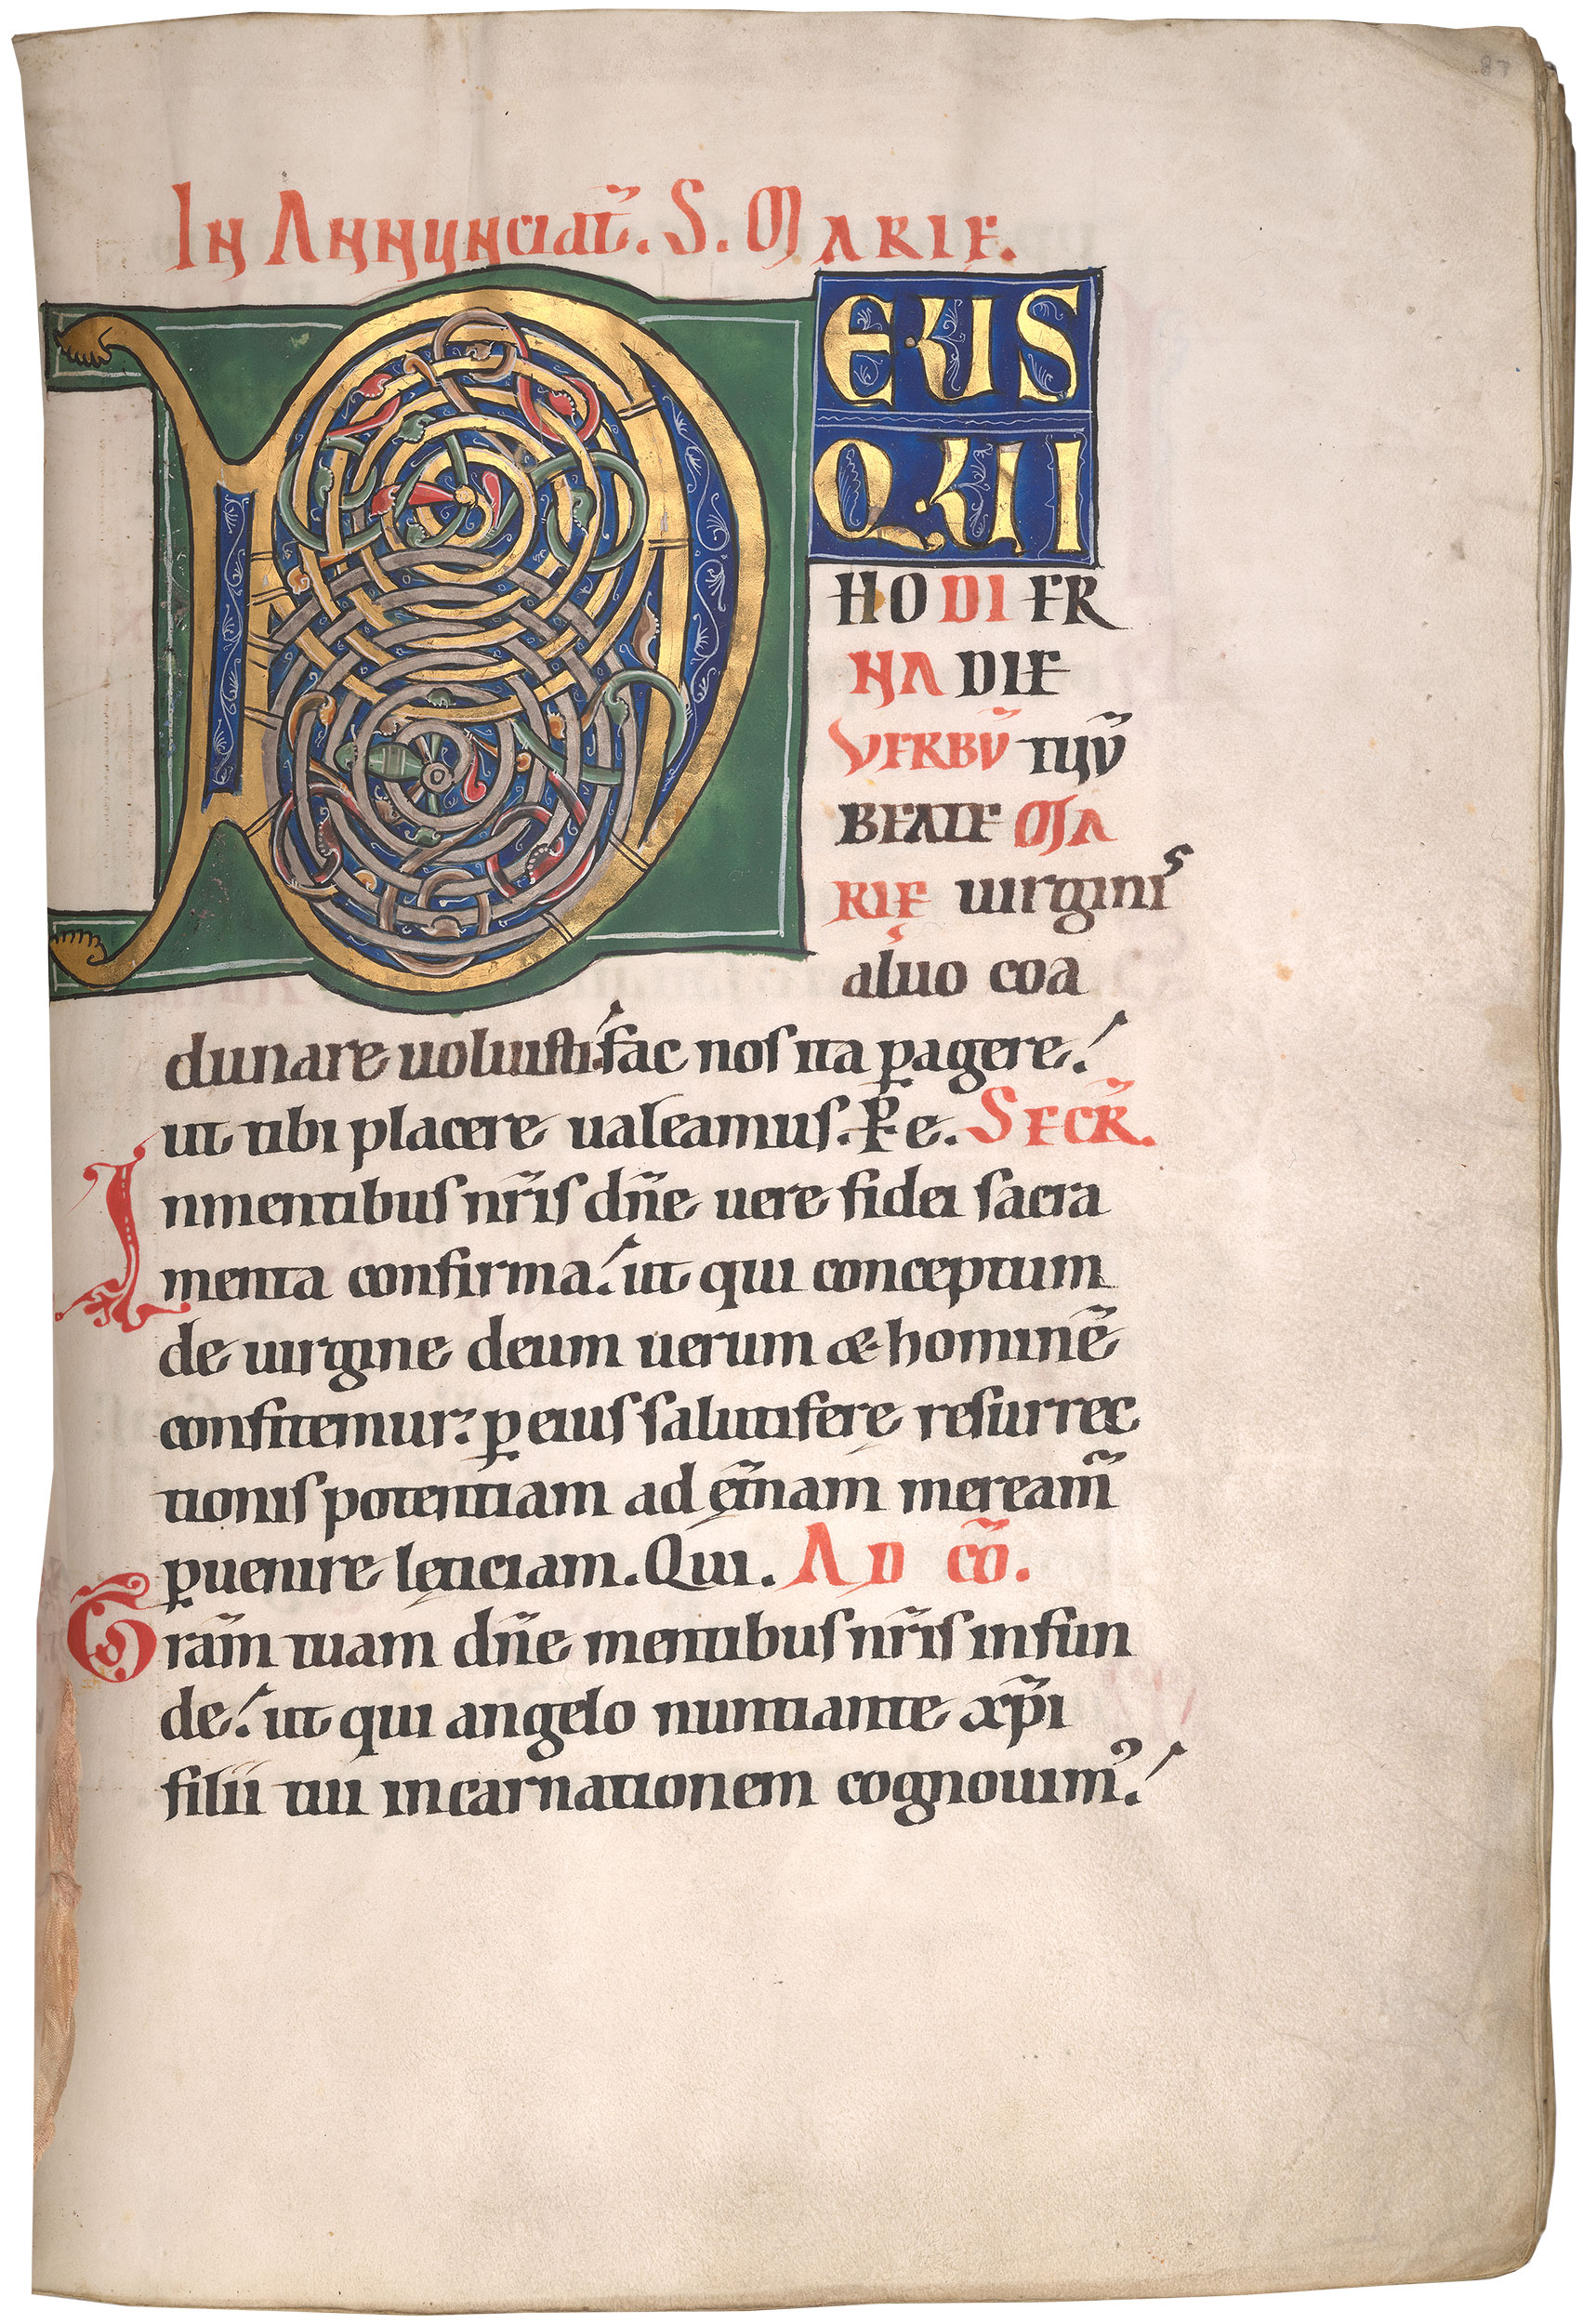 87
In Annunciat̄. S. Marie.
DEUS
QUI
HODIER
NA DIE
VERBŪ TUŪ
BEATE MA
RIĘ uirginis
aluo coa
dunare uoluisti. fac nos ita ꝑagere.
ut tibi placere ualeamus. P̄ e. Secr̄.
Inmentibus nr̄is dn̄e uere fidei sacra
menta confirma. ut qui conceptum
de uirgine deum uerum & hominē
confitemur. ꝑ eius salutiferę resurrec
tionis potentiam ad ęt̄nam meream̄
ꝑuenire lęticiam. Qui. AD cō.
Gram̄ tuam dn̄e mentibus nr̄is infun
de. ut qui angelo nuntiante xp̄i
filii tui incarnationem cognouimꝰ.